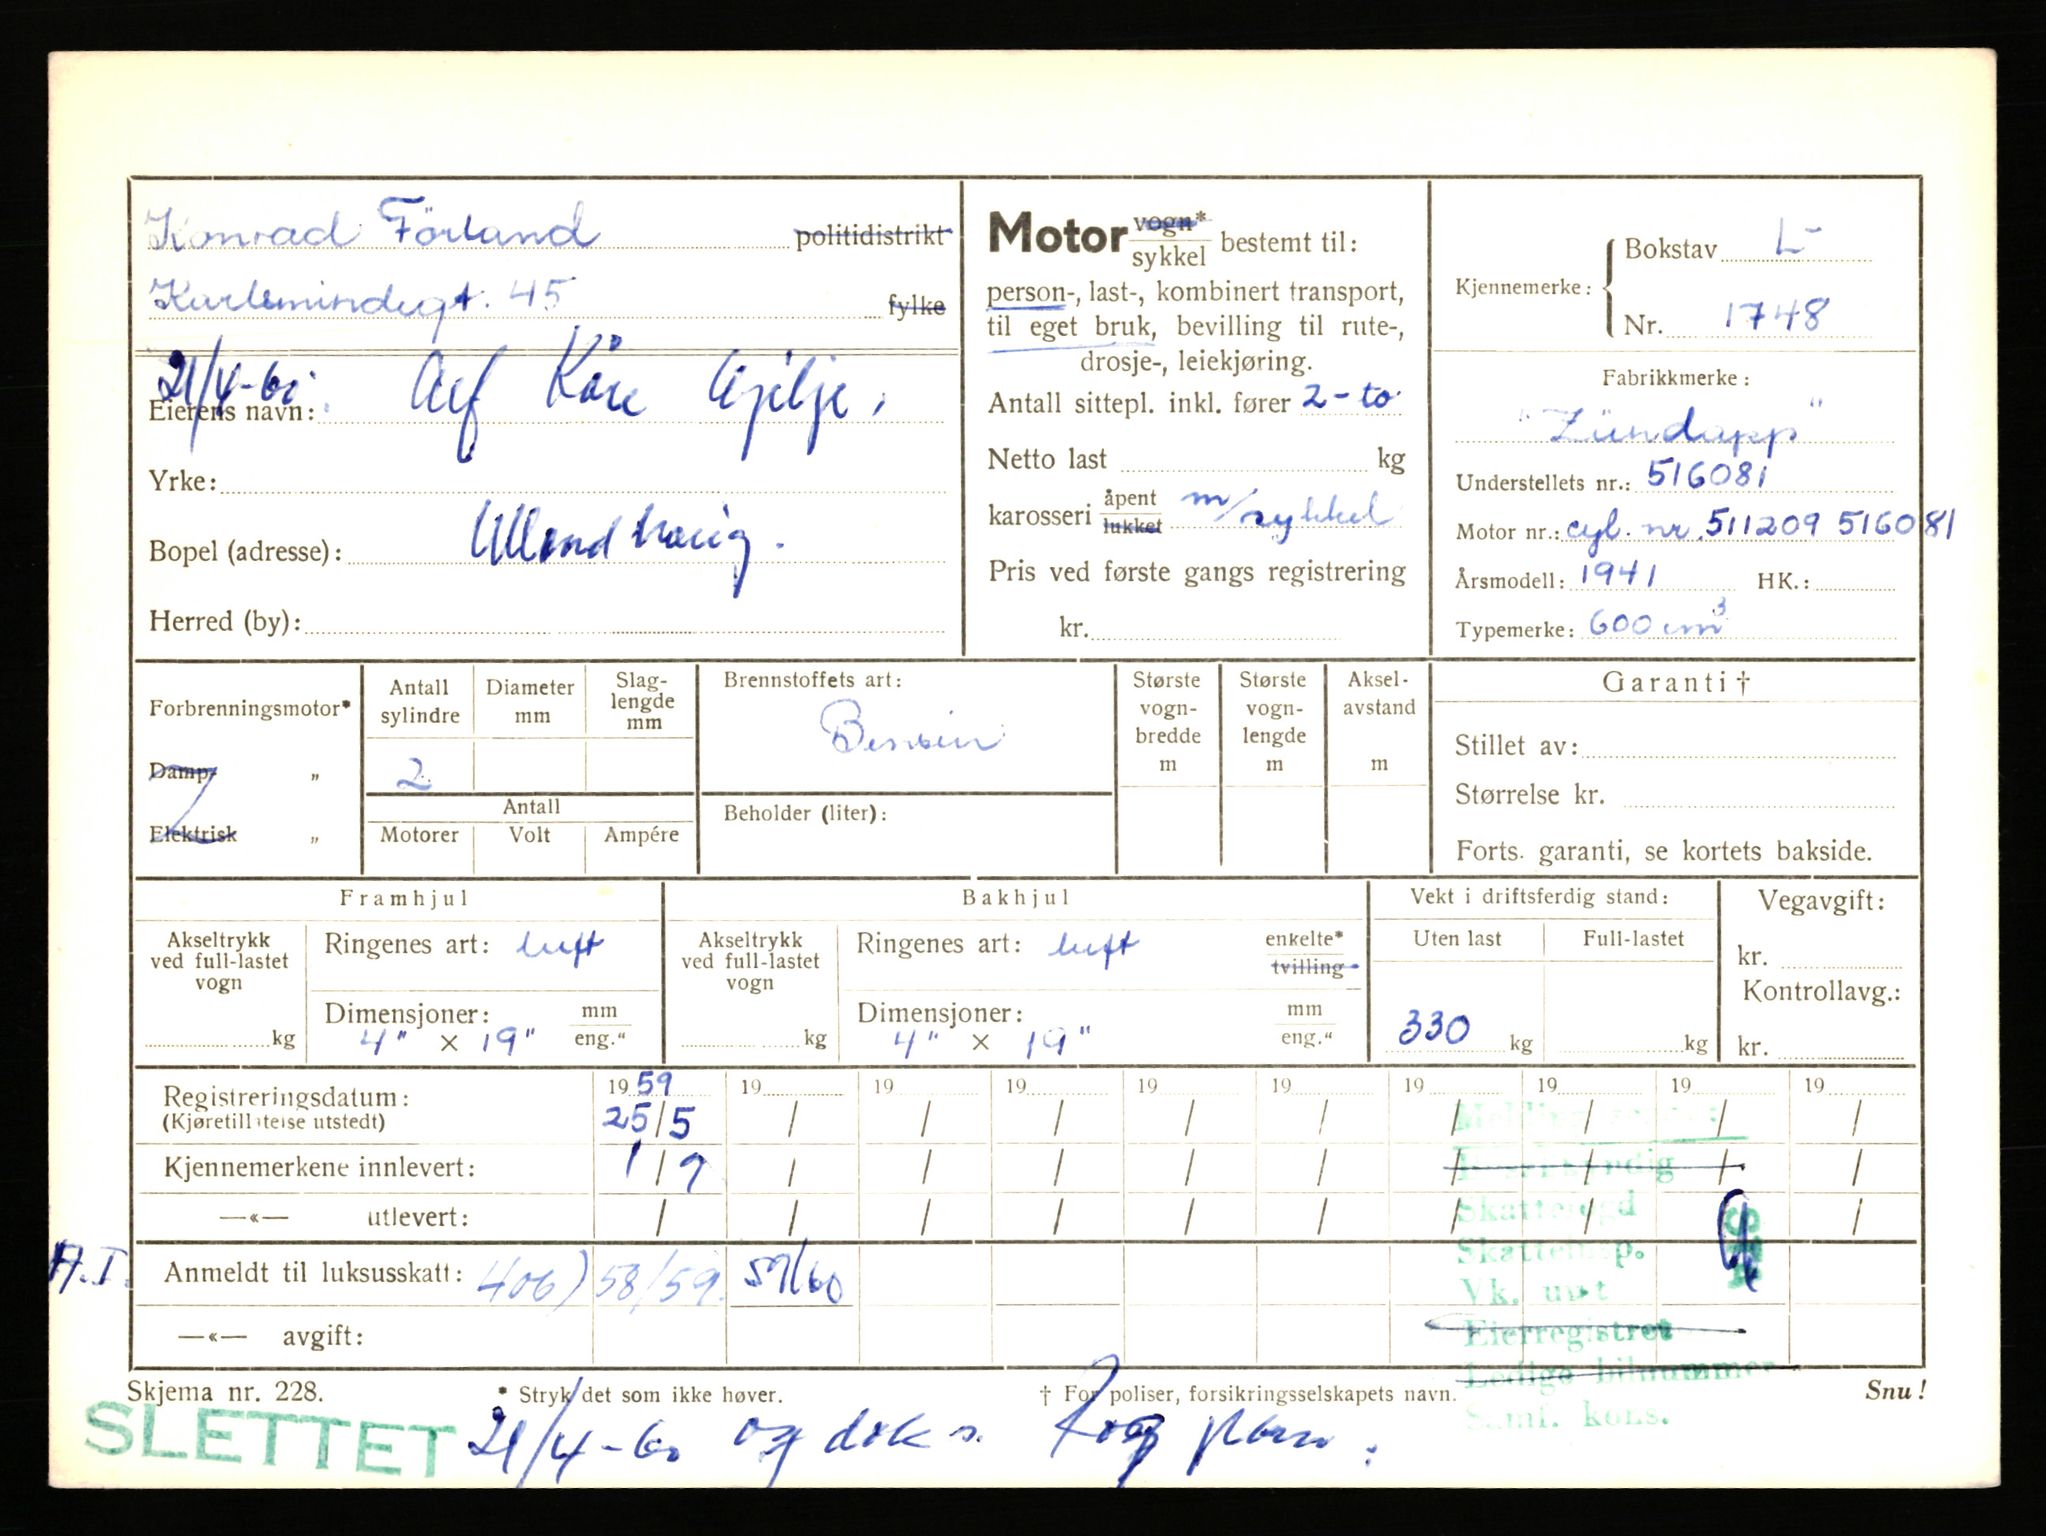 Konrad Förland politidistrikt
Karlsmindegt. 45 fylke
21/4-60.
Eierens navn: Alf Kåre Gjilje,
Yrke:
Bopel (adresse): Ullandhaug.
Herred (by):
Motor vogn* sykkel bestemt til:
person-, last-, kombinert transport,
til eget bruk, bevilling til rute-,
drosje-, leiekjøring.
Antall sittepl. inkl. fører 2-to
Netto last kg
karosseri åpent lukket m/sykkel
Pris ved første gangs registrering
kr.
Kjennemerke: Bokstav L-
Nr. 1748
Fabrikkmerke:
"Zündapp"
Understellets nr.: 516081
Motor nr.: cyl. nr. 511209 516081
Årsmodell: 1941 HK.:
Typemerke: 600 cm³
Forbrenningsmotor*
Damp- „
Elektrisk „
Antall sylindre
Diameter mm
Slag-lengde mm
2
Antall
Motorer Volt Ampére
Brennstoffets art:
Bensin
Beholder (liter):
Største vogn-bredde m
Største vogn-lengde m
Aksel-avstand m
Garanti †
Stillet av:
Størrelse kr.
Forts. garanti, se kortets bakside.
Framhjul
Akseltrykk ved full-lastet vogn
kg
Ringenes art: luft
Dimensjoner: mm eng."
4" × 19"
Bakhjul
Akseltrykk ved full-lastet vogn
kg
Ringenes art: luft enkelte* tvilling
Dimensjoner: mm eng."
4" × 19"
Vekt i driftsferdig stand:
Uten last Full-lastet
330 kg kg
Vegavgift:
kr.
Kontrollavg.:
kr.
19 59 19 19 19 19 19 19 19 19 19
Registreringsdatum: 25/5 / / / / / / / / /
(Kjøretillatelse utstedt)
Kjennemerkene innlevert: 1/9 / / / / / / / / /
—«— utlevert: / / / / / / / / / /
A.I. Anmeldt til luksusskatt: 406) 58/59. 59/60
—«— avgift:
Skattefogd
Skatteinsp.
Vk. uvst
Eierregistret
Ledige bilnummer
Samf. kons.
Skjema nr. 228. * Stryk det som ikke høver. † For poliser, forsikringsselskapets navn. Snu!
SLETTET 21/4-60 og dok s.